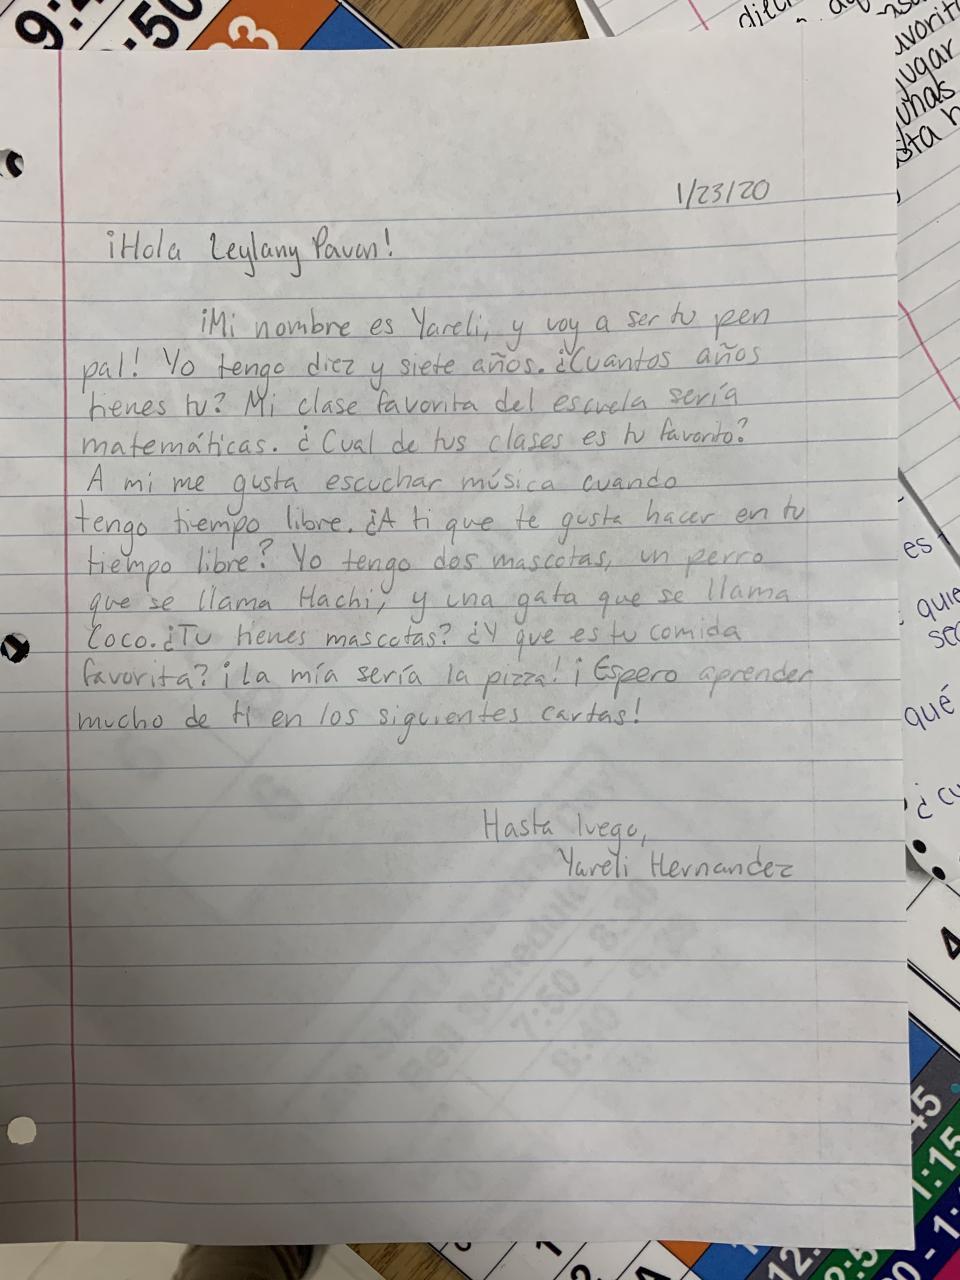 9:4
:50
03
1/23/20
¡Hola Leylany Pavon!
¡Mi nombre es Yareli, y voy a ser tu pen
pal! Yo tengo diez y siete años. ¿Cuantos años
tienes tu? Mi clase favorita del escuela sería
matemáticas. ¿Cual de tus clases es tu favorito?
A mi me gusta escuchar música cuando
tengo tiempo libre. ¿A ti que te gusta hacer en tu
tiempo libre? Yo tengo dos mascotas, un perro
que se llama Hachi, y una gata que se llama
Coco. ¿Tu tienes mascotas? ¿Y que es tu comida
favorita? ¡La mía sería la pizza! ¡Espero aprender
mucho de ti en los siguientes cartas!
Hasta luego,
Yareli Hernandez
jugar
es
quie
qué
¿cu
4
45
1:15
Bell Schedule
7:50 - 8:30
8:40